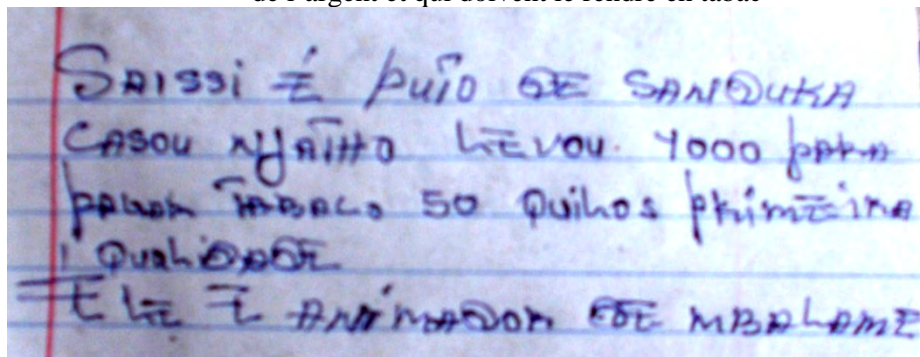 de l'argent et qui doivent le rendre en tabac
SAISSI É PUTO DE SANDUKA
CASOU NYATHO LEVOU. 4000 PARA
PAGAR TABACO 50 QUILOS PRIMEIRA
QUALIDADE
ELE É ANIMADOR DE MBALAME